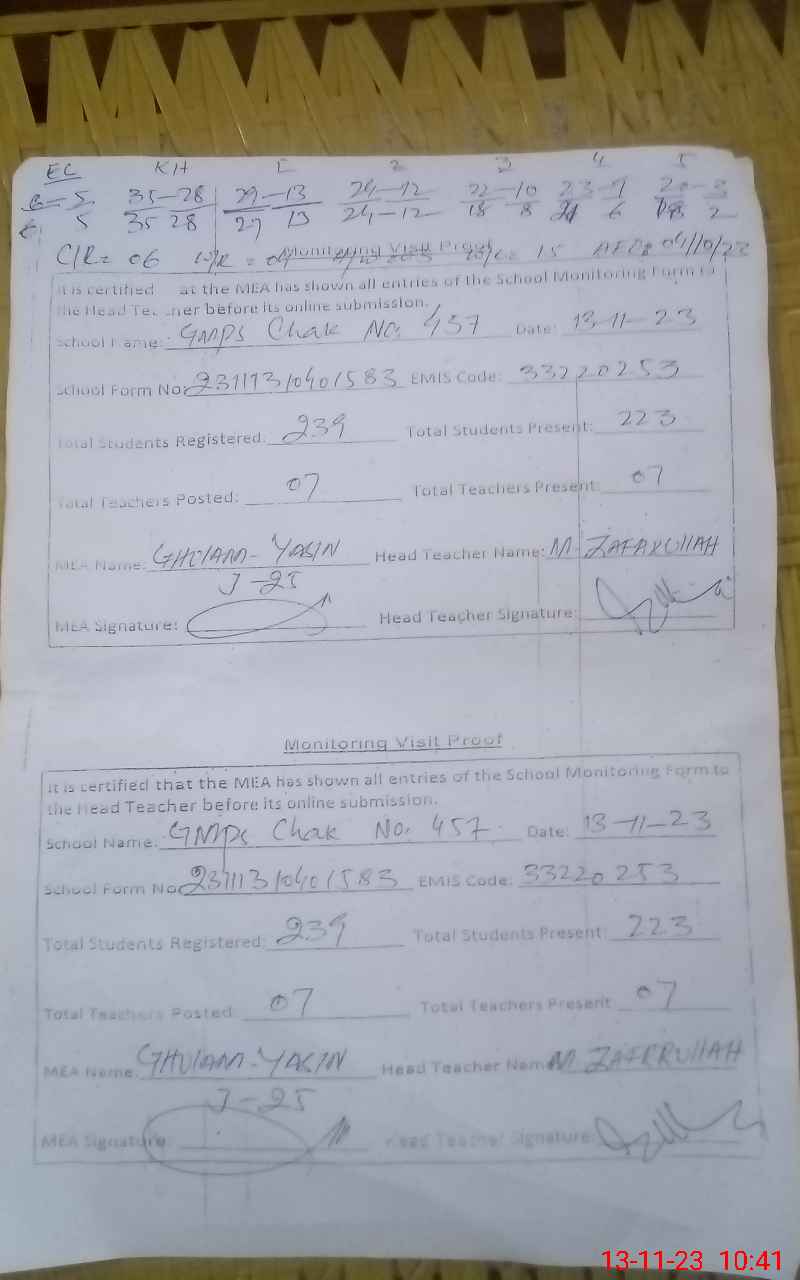 EC KH 1 2 3 4 5
5 35-28 29-13 24-12 22-10 23-9 20-3
5 35 28 27 13 24-12 18 8 21 6 18 2
C/R= 06 = 15 04/10/23
Monitoring Visit Proof
It is certified at the MEA has shown all entries of the School Monitoring Form to
the Head Tec ner before its online submission.
School Name: GMPS Chak No. 457 Date: 13-11-23
School Form No: 23111310401583 EMIS Code: 33220253
Total Students Registered: 239 Total Students Present: 223
Total Teachers Posted: 07 Total Teachers Present: 07
MEA Name: GHULAM-YASIN Head Teacher Name: M. ZAFARULLAH
J-25
MEA Signature: Head Teacher Signature:
Monitoring Visit Proof
It is certified that the MEA has shown all entries of the School Monitoring Form to
the Head Teacher before its online submission.
School Name: GMPS Chak No. 457 Date: 13-11-23
School Form No: 23111310401583 EMIS Code: 33220253
Total Students Registered: 239 Total Students Present: 223
Total Teachers Posted: 07 Total Teachers Present: 07
MEA Name: GHULAM-YASIN Head Teacher Name: M ZAFRRULLAH
J-25
MEA Signature: Head Teacher Signature:
13-11-23 10:41